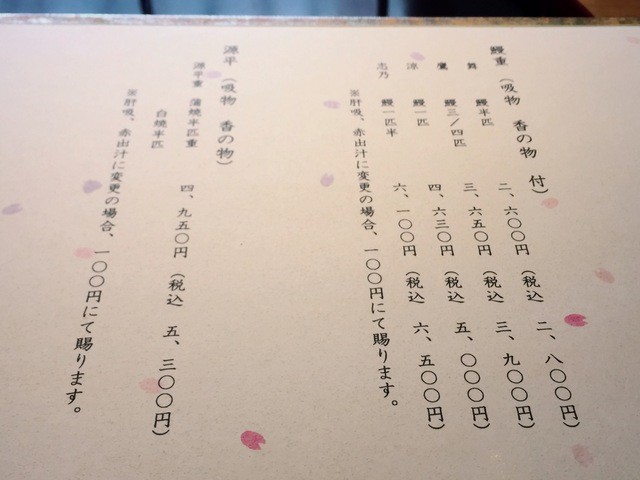 鰻重（吸物　香の物　付）
舞　鰻半匹　二、六〇〇円（税込　二、八〇〇円）
鷹　鰻三／四匹　三、六五〇円（税込　三、九〇〇円）
涼　鰻一匹　四、六三〇円（税込　五、〇〇〇円）
志乃　鰻一匹半　六、一〇〇円（税込　六、五〇〇円）
※肝吸、赤出汁に変更の場合、一〇〇円にて賜ります。
源平（吸物　香の物）
源平重　蒲焼半匹重　四、九五〇円（税込　五、三〇〇円）
白焼半匹
※肝吸、赤出汁に変更の場合、一〇〇円にて賜ります。